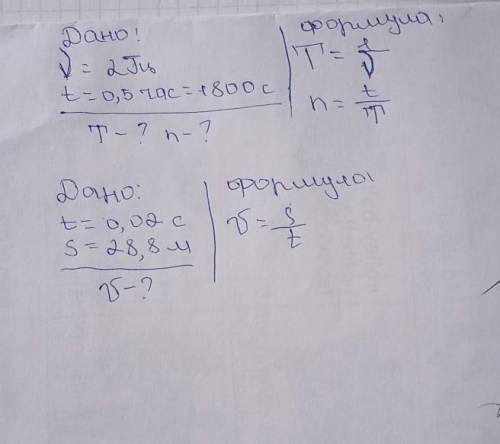 Дано:
ν = 2Гц
t = 0,5 час = 1800 с
T - ? n - ?
формула:
T = 1/ν
n = t/T
Дано:
t = 0,02 с
S = 28,8 м
υ - ?
формула:
υ = S/t